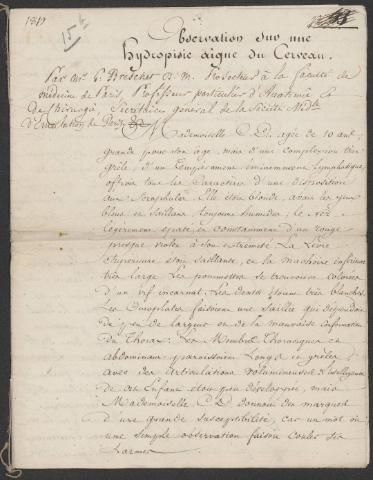 1817
15
Observation sur une
hydropisie aigue du Cerveau.
Par Mr. G. Breschet D. M. Prosecteur à la faculté de
médecine de Paris, Professeur particulier d'Anatomie &
de chirurgie, Secrétaire général de la Société Médle
d'Emulation de Paris, &c
Mademoiselle C. D. agée de 10 ans,
grande pour son age, mais d'une complexion très
grêle, d'un tempérament éminemment lymphatique,
offroit tous les caractères d'une disposition
aux Scrophules. Elle étoit blonde, avait les yeux
bleus, et saillans, toujours humides; le nez
légèrement épaté, et constamment d'un rouge
presque violet à son extrémité. La lèvre
supérieure étoit saillante, et la machoire inférieure
très large. Les pommettes se trouvoient colorées
d'un vif incarnat. Les dents étoient très blanches.
Les omoplates faisoient une saillie qui dépendoit
du peu de largeur et de la mauvaise conformation
du Thorax. Les Membres Thorachiques et
abdominaux paroissoient Longs et grêles
avec des articulations volumineuses. L'intelligence
de cet Enfant étoit peu développée, mais
Mademoiselle C. D. donnoit des marques
d'une grande susceptibilité, car un mot ou
une simple observation faisoit couler ses
larmes.